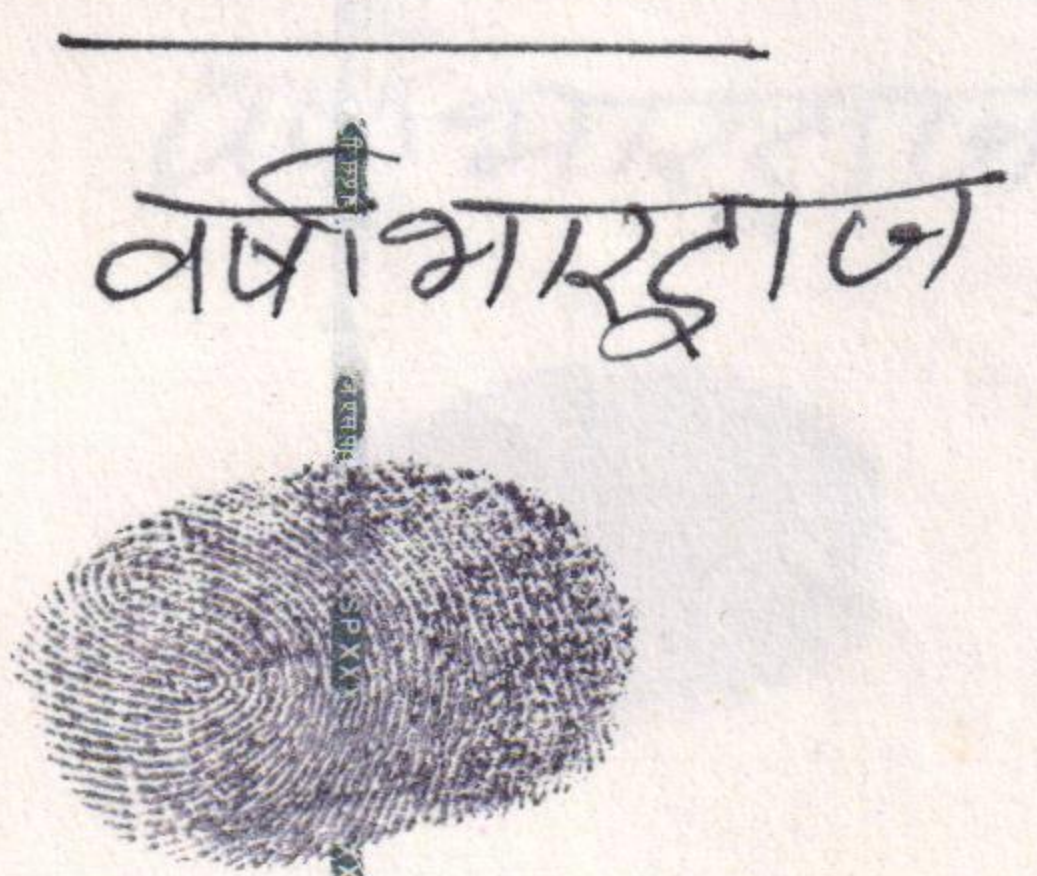 वर्षा भारद्वाज
SPXX